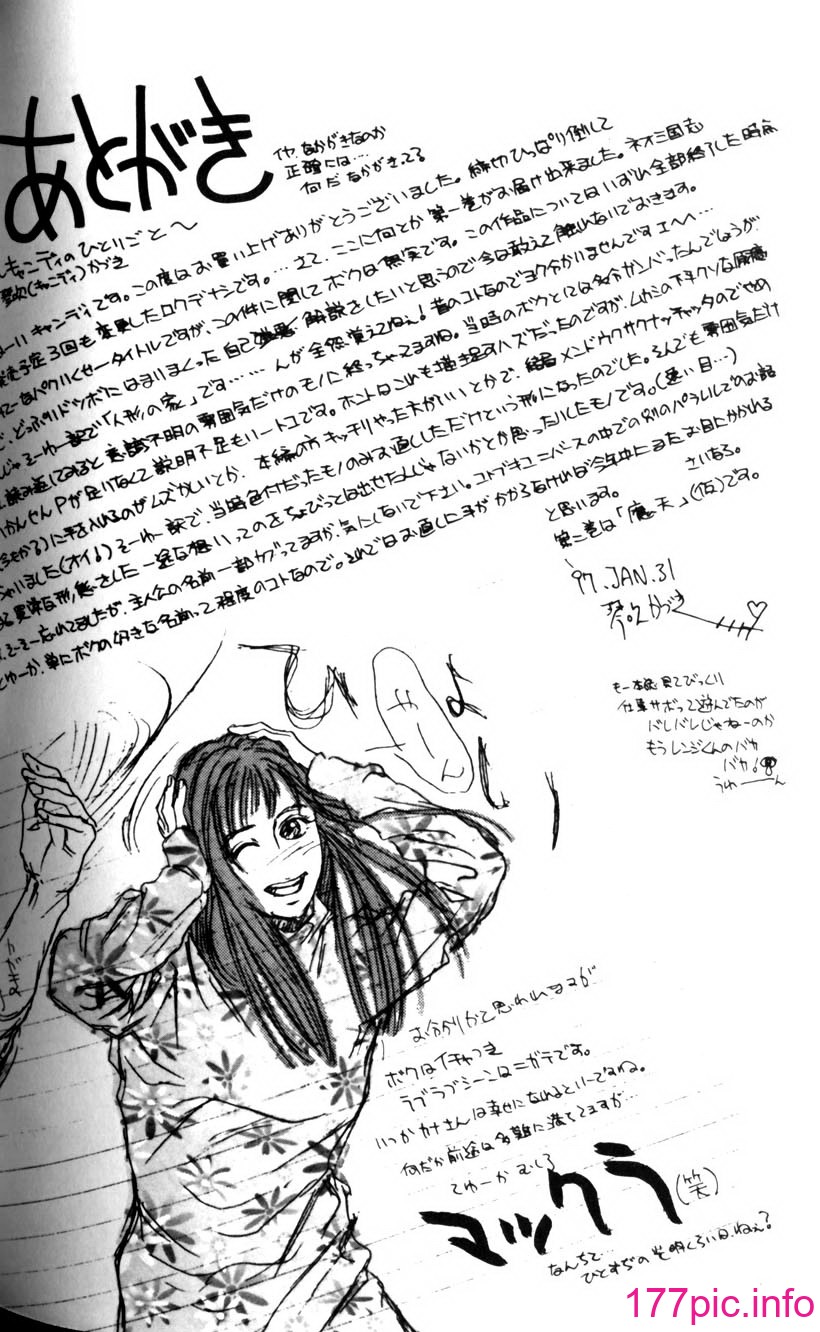 あとがき
イヤ、なかがきなのか
正確には…
何だ なかがきって
キャンディのひとりごと〜
キャンディです。この度はお買い上げありがとうございました。締切ひっぱり倒して
発売予定3回も変更したロクデナシです。……さて、ここに何とか第一巻がお届け出来ました。ネオ三国志
パクリくせータイトルですが、この件に関してボクは無実です。この作品についてはいずれ全部終了した時点
で、どっぷりドツボにはまりまくった自己 解説をしたいと思うので今は敢えて触れないでおきます。
じゃそーゆー訳で「人形の家」です………んが全然覚えてねぇ!昔のコトなのでヨク分かいませんですエヘヘ…
読み返してみると意識不明の雰囲気だけのモノに終っちゃってますね。当時のボクとしては多分ガンバったんでしょうが
かんせんPが足りなくて説明不足もいートコです。ホントはこれも描き足すハズだったのですが、ムカシの下手クソな原稿
に手を入れるのがムズかしいとか、本編の方キッチリやった方がいいとかで、結局メンドウクサクナッチャッタのでやめ
ちゃいました(オイ!)そーゆー訳で、当時色付だったモノのみお直ししただけという形になったのでした。なんでも雰囲気だけ
一途な想いってのをちょびっとは出せたんじゃないかとか思ったりしたモノです。(遠い目…)
忘れてましたが、主人公の名前一部カブってますが、気にしないで下さい。コトブキユニバースの中での別のパラレルでのお話
とゆーか、単にボクの好きな名前って程度のコトなので。それではお直しに手がかからなければ今年中にまたお目にかかれる
と思います。
さいなら。
第二巻は「魔天」(仮)です。
'97.JAN.31
琴吹かづき
も一本後見てびっくり
仕事サボって遊んでたのが
バレバレじゃねーのか
もうレンジくんのバカ
バカ!
うわーん
ひょい
お分かりかと思われますが
ボクはイチャつき
ラブラブシーンはニガテです。
いつかカナさんは幸せになれるといーですね。
何だか前途は多難に満ちてますが…
てゆーか むしろ
マックラ(笑)
なんちて…
ひとすじの光明くらいはねぇ?
177pic.info